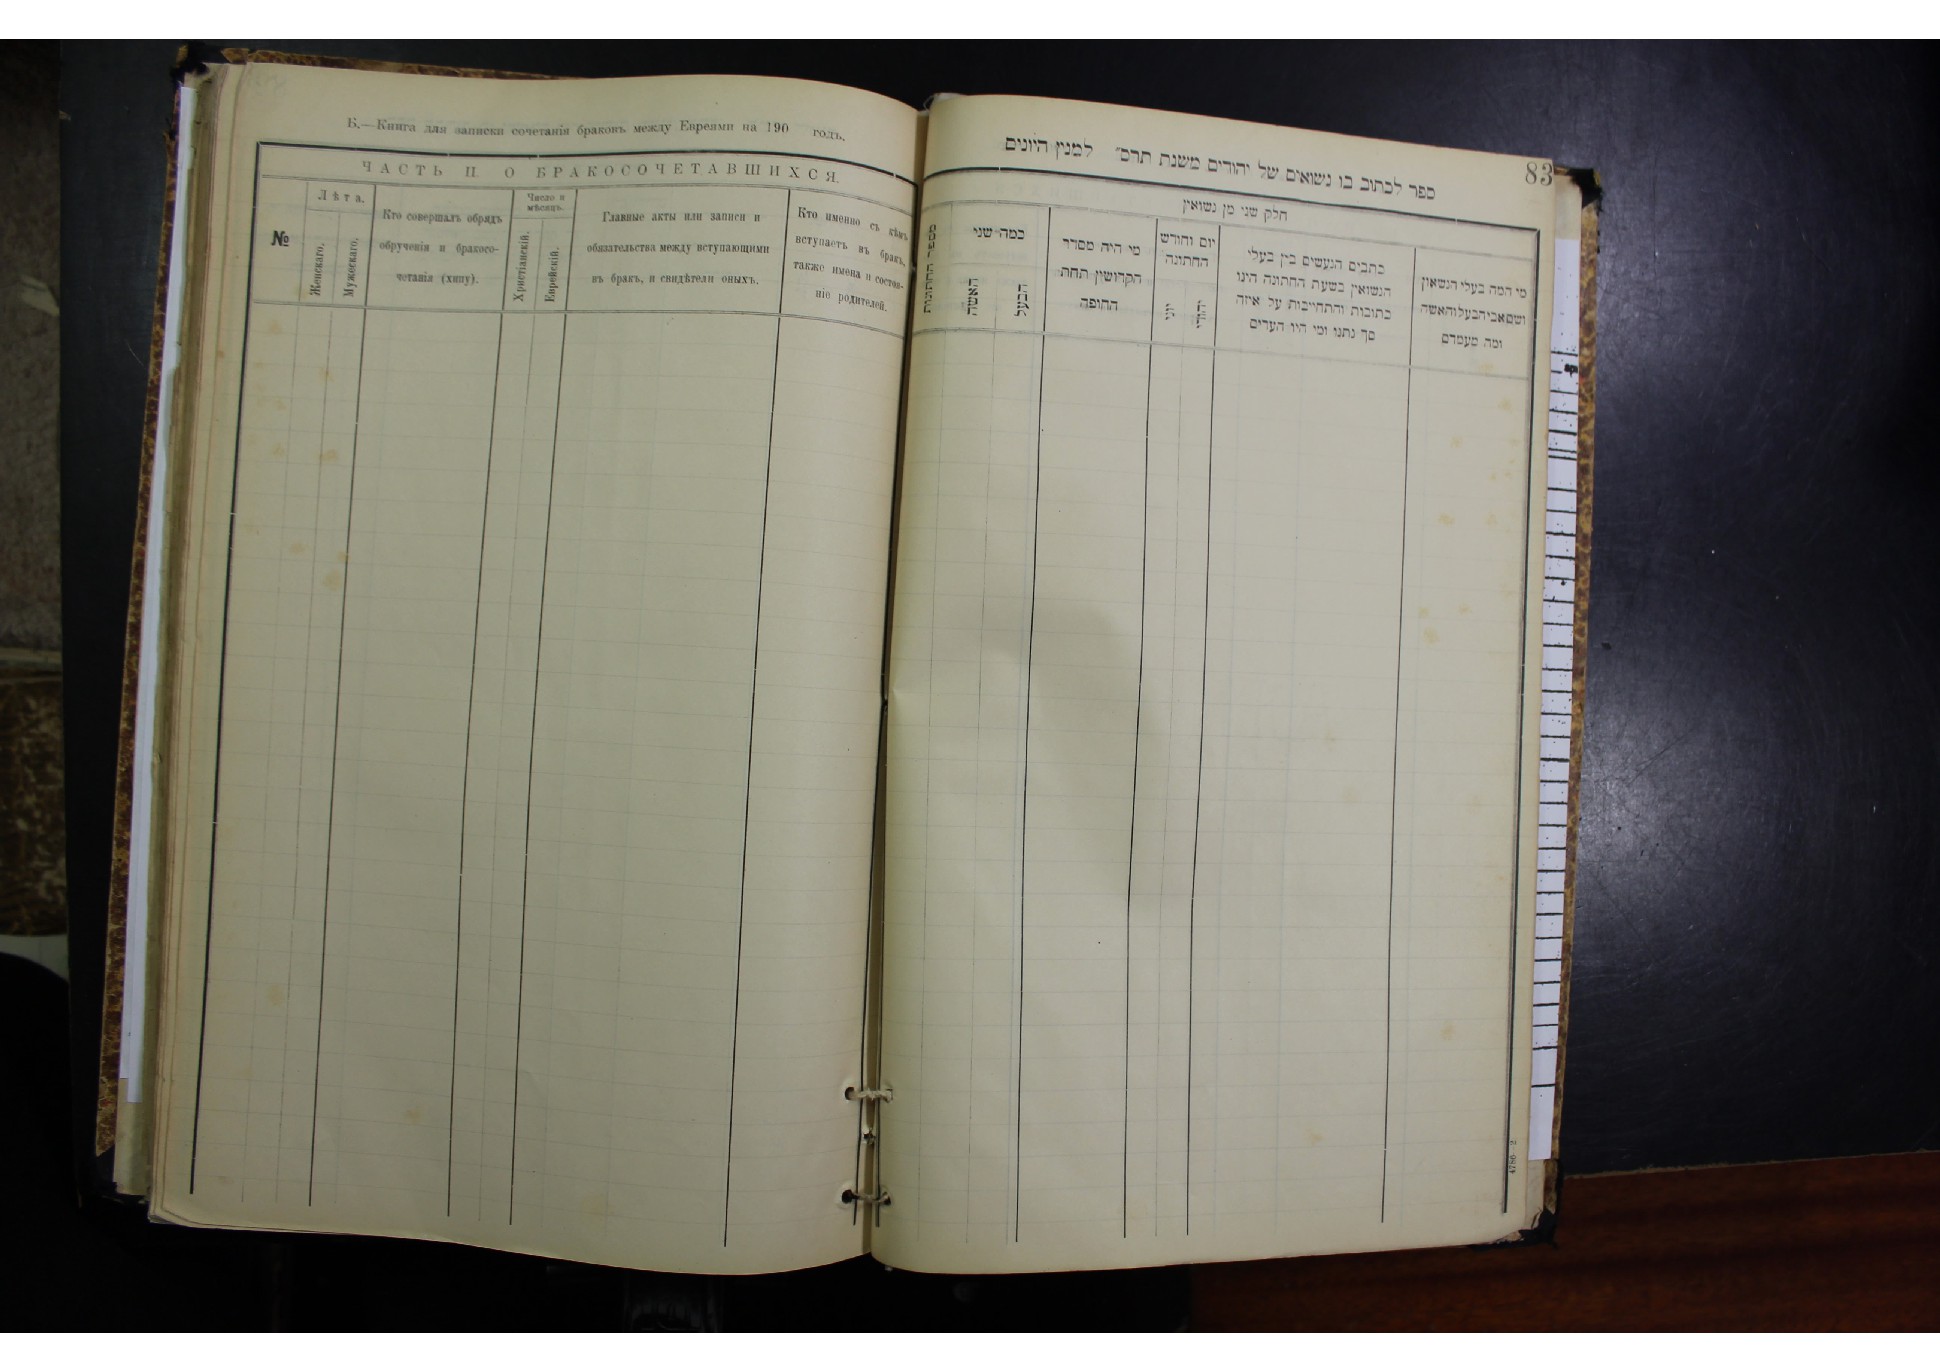 Б.—Книга для записки сочетанія браковъ между Евреями на 190 годъ.
ЧАСТЬ II. О БРАКОСОЧЕТАВШИХСЯ.
№
Лѣта.
Женскаго.
Мужескаго.
Кто совершалъ обрядъ
обрученія и бракосо-
четанія (хипу).
Число и
мѣсяцъ.
Христіанскій.
Еврейскій.
Главные акты или записи и
обязательства между вступающими
въ бракъ, и свидѣтели оныхъ.
Кто именно съ кѣмъ
вступаетъ въ бракъ,
также имена и состоя-
ніе родителей.
83
ספר לכתוב בו נשואים של יהודים משנת תרס״ למנין היונים
חלק שני מן נשואין
מי המה בעלי הנשואין
ושם אביהבעלוהאשה
ומה מעמדם
כתבים הנעשים בין בעלי
הנשואין בשעת החתונה היינו
כתובות והתחייבות על איזה
סך נתנו ומי היו העדים
יום וחודש
החתונה
יהודי
יוני
מי היה מסדר
הקדושין תחת
החופה
כמה שני
הבעל
האשה
מספר החתונות
4786 2